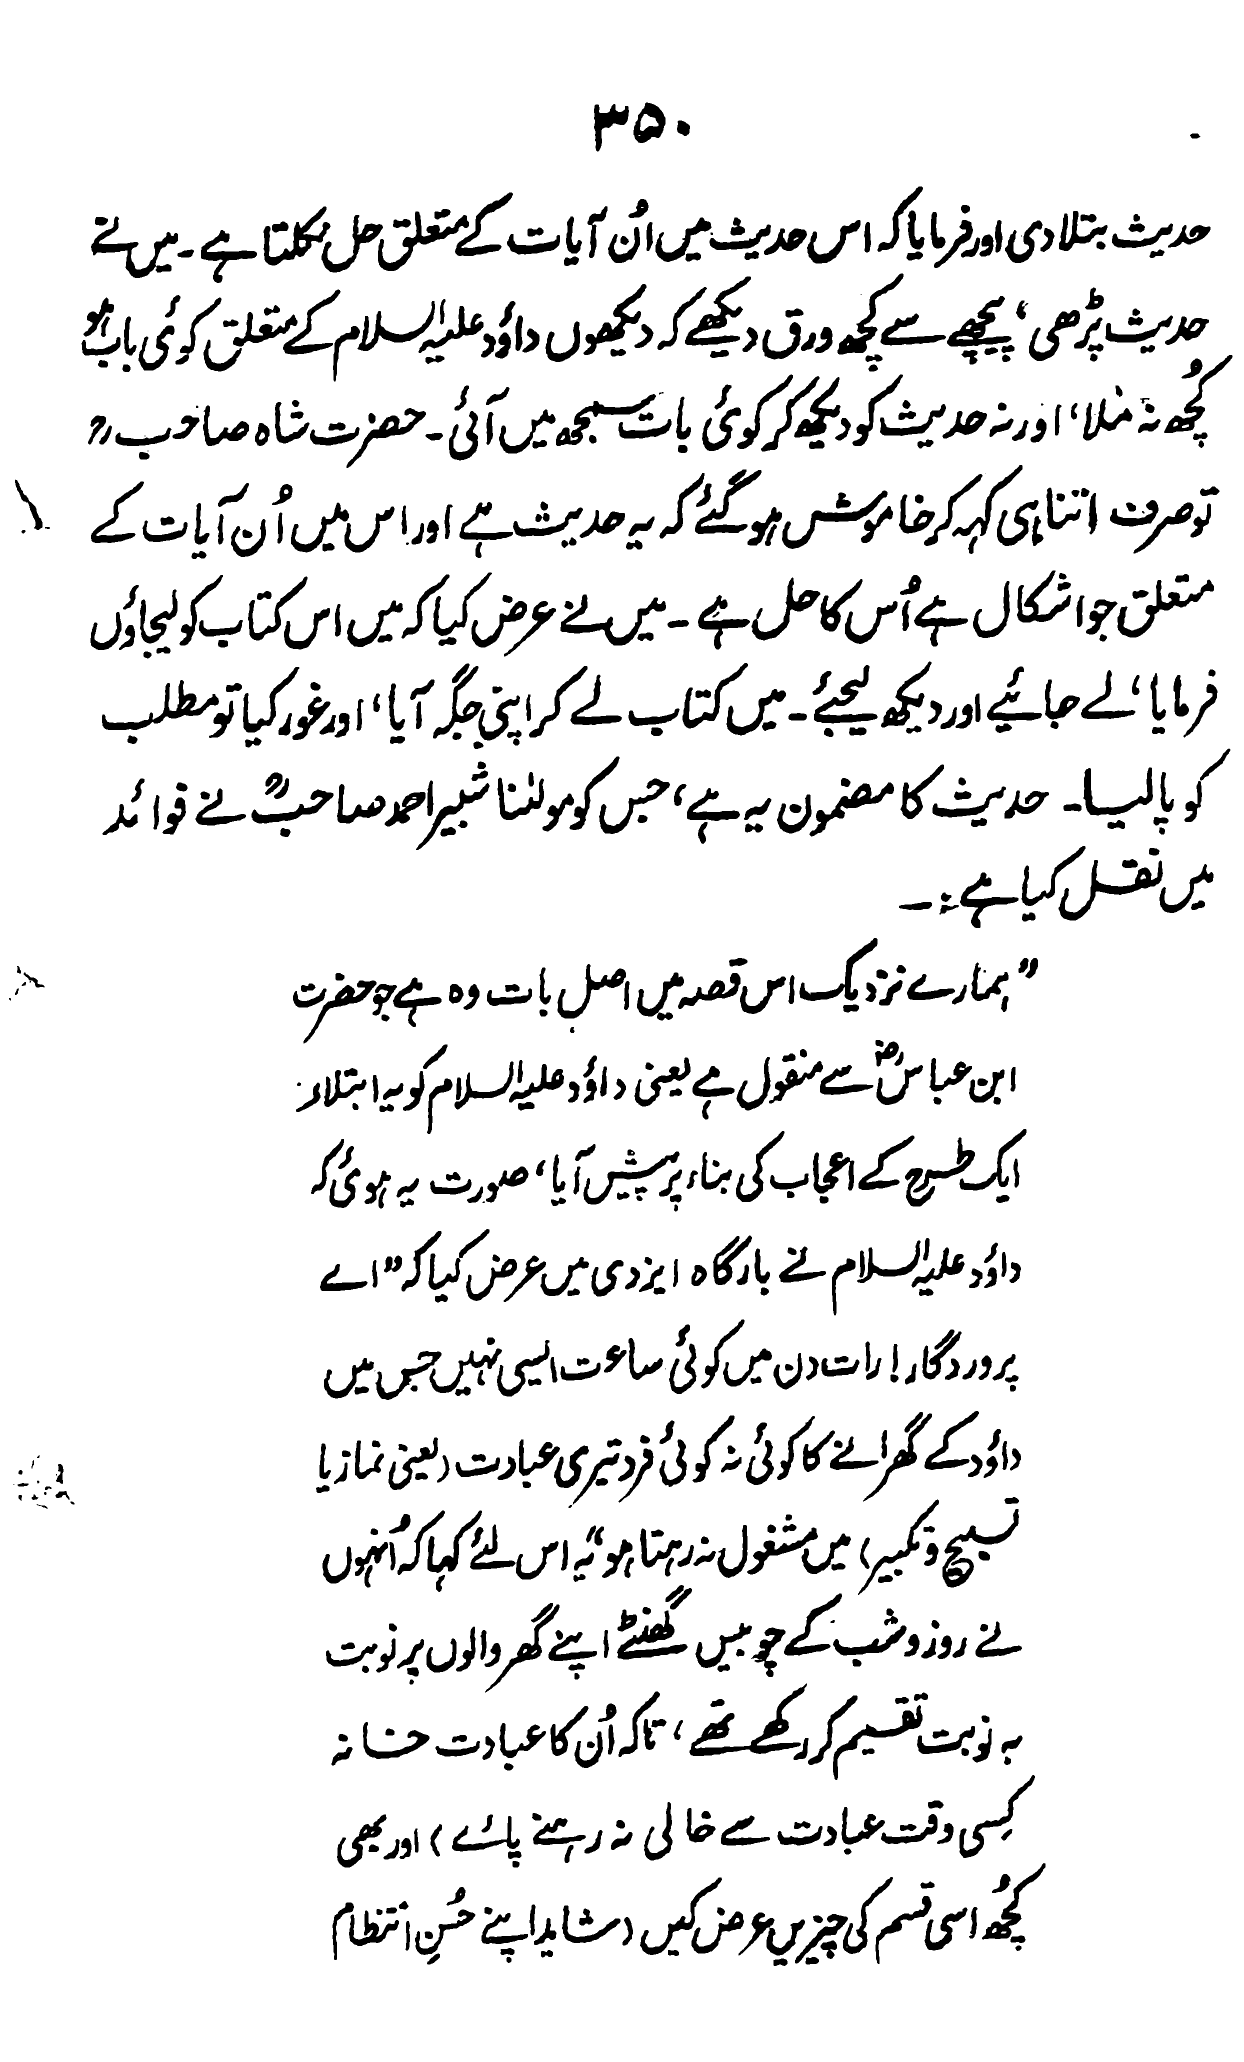 ۳۵۰
حدیث بتلا دی اور فرمایا کہ اس حدیث میں اُن آیات کے متعلق حل نکلتا ہے ۔ میں نے
حدیث پڑھی، پیچھے سے کچھ ورق دیکھے کہ دیکھوں داؤد علیہ السلام کے متعلق کوئی باب ہو
کچُھ نہ مِلا، اور نہ حدیث کو دیکھ کر کوئی بات سمجھ میں آئی ۔ حضرت شاہ صاحب رح
تو صرف اتنا ہی کہہ کر خاموش ہو گئے کہ یہ حدیث ہے اور اس میں اُن آیات کے
متعلق جو اشکال ہے اُس کا حل ہے ۔ میں نے عرض کیا کہ میں اس کتاب کو لیجاؤں
فرمایا، لے جائیے اور دیکھ لیجئے ۔ میں کتاب لے کر اپنی جگہ آیا، اور غور کیا تو مطلب
کو پا لیا ۔ حدیث کا مضمون یہ ہے، جس کو مولٰنا شبیر احمد صاحبؒ نے فوائد
میں نقل کیا ہے :۔
”ہمارے نزدیک اس قصہ میں اصل بات وہ ہے جو حضرت
ابن عباسؓ سے منقول ہے یعنی داؤد علیہ السلام کو یہ ابتلاء
ایک طرح کے اعجاب کی بناء پر پیش آیا، صورت یہ ہوئی کہ
داؤد علیہ السلام نے بارگاہ ایزدی میں عرض کیا کہ ”اے
پروردگار! رات دن میں کوئی ساعت ایسی نہیں جس میں
داؤد کے گھرانے کا کوئی نہ کوئی فرد تیری عبادت (یعنی نماز یا
تسبیح و تکبیر) میں مشغول نہ رہتا ہو“ یہ اس لئے کہا کہ اُنہوں
نے روز و شب کے چوبیس گھنٹے اپنے گھر والوں پر نوبت
بہ نوبت تقسیم کر رکھے تھے، تاکہ اُن کا عبادت خانہ
کِسی وقت عبادت سے خالی نہ رہنے پائے) اور بھی
کچُھ اسی قسم کی چیزیں عرض کیں (شاید اپنے حُسنِ انتظام